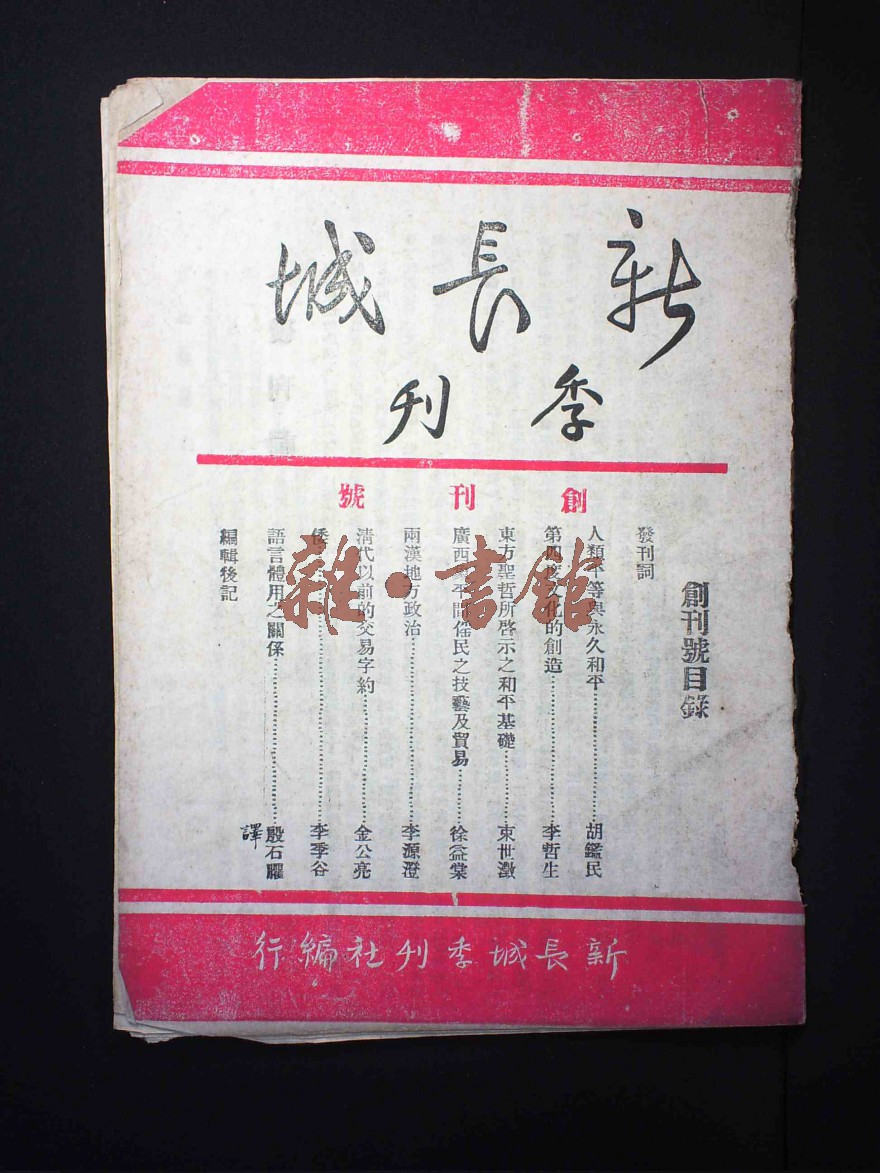 新長城
季刊
創刊號
創刊號目錄
發刊詞
人類平等與永久和平……胡鑑民
第四度文化的創造……李哲生
東方聖哲所啓示之和平基礎……東世澂
廣西 平間傜民之技藝及貿易……徐益棠
兩漢地方政治……李源澄
清代以前的交易字約……金公亮
倭……李季谷
語言體用之關係……殷石臞譯
編輯後記
新長城季刊社編行
雜·書館